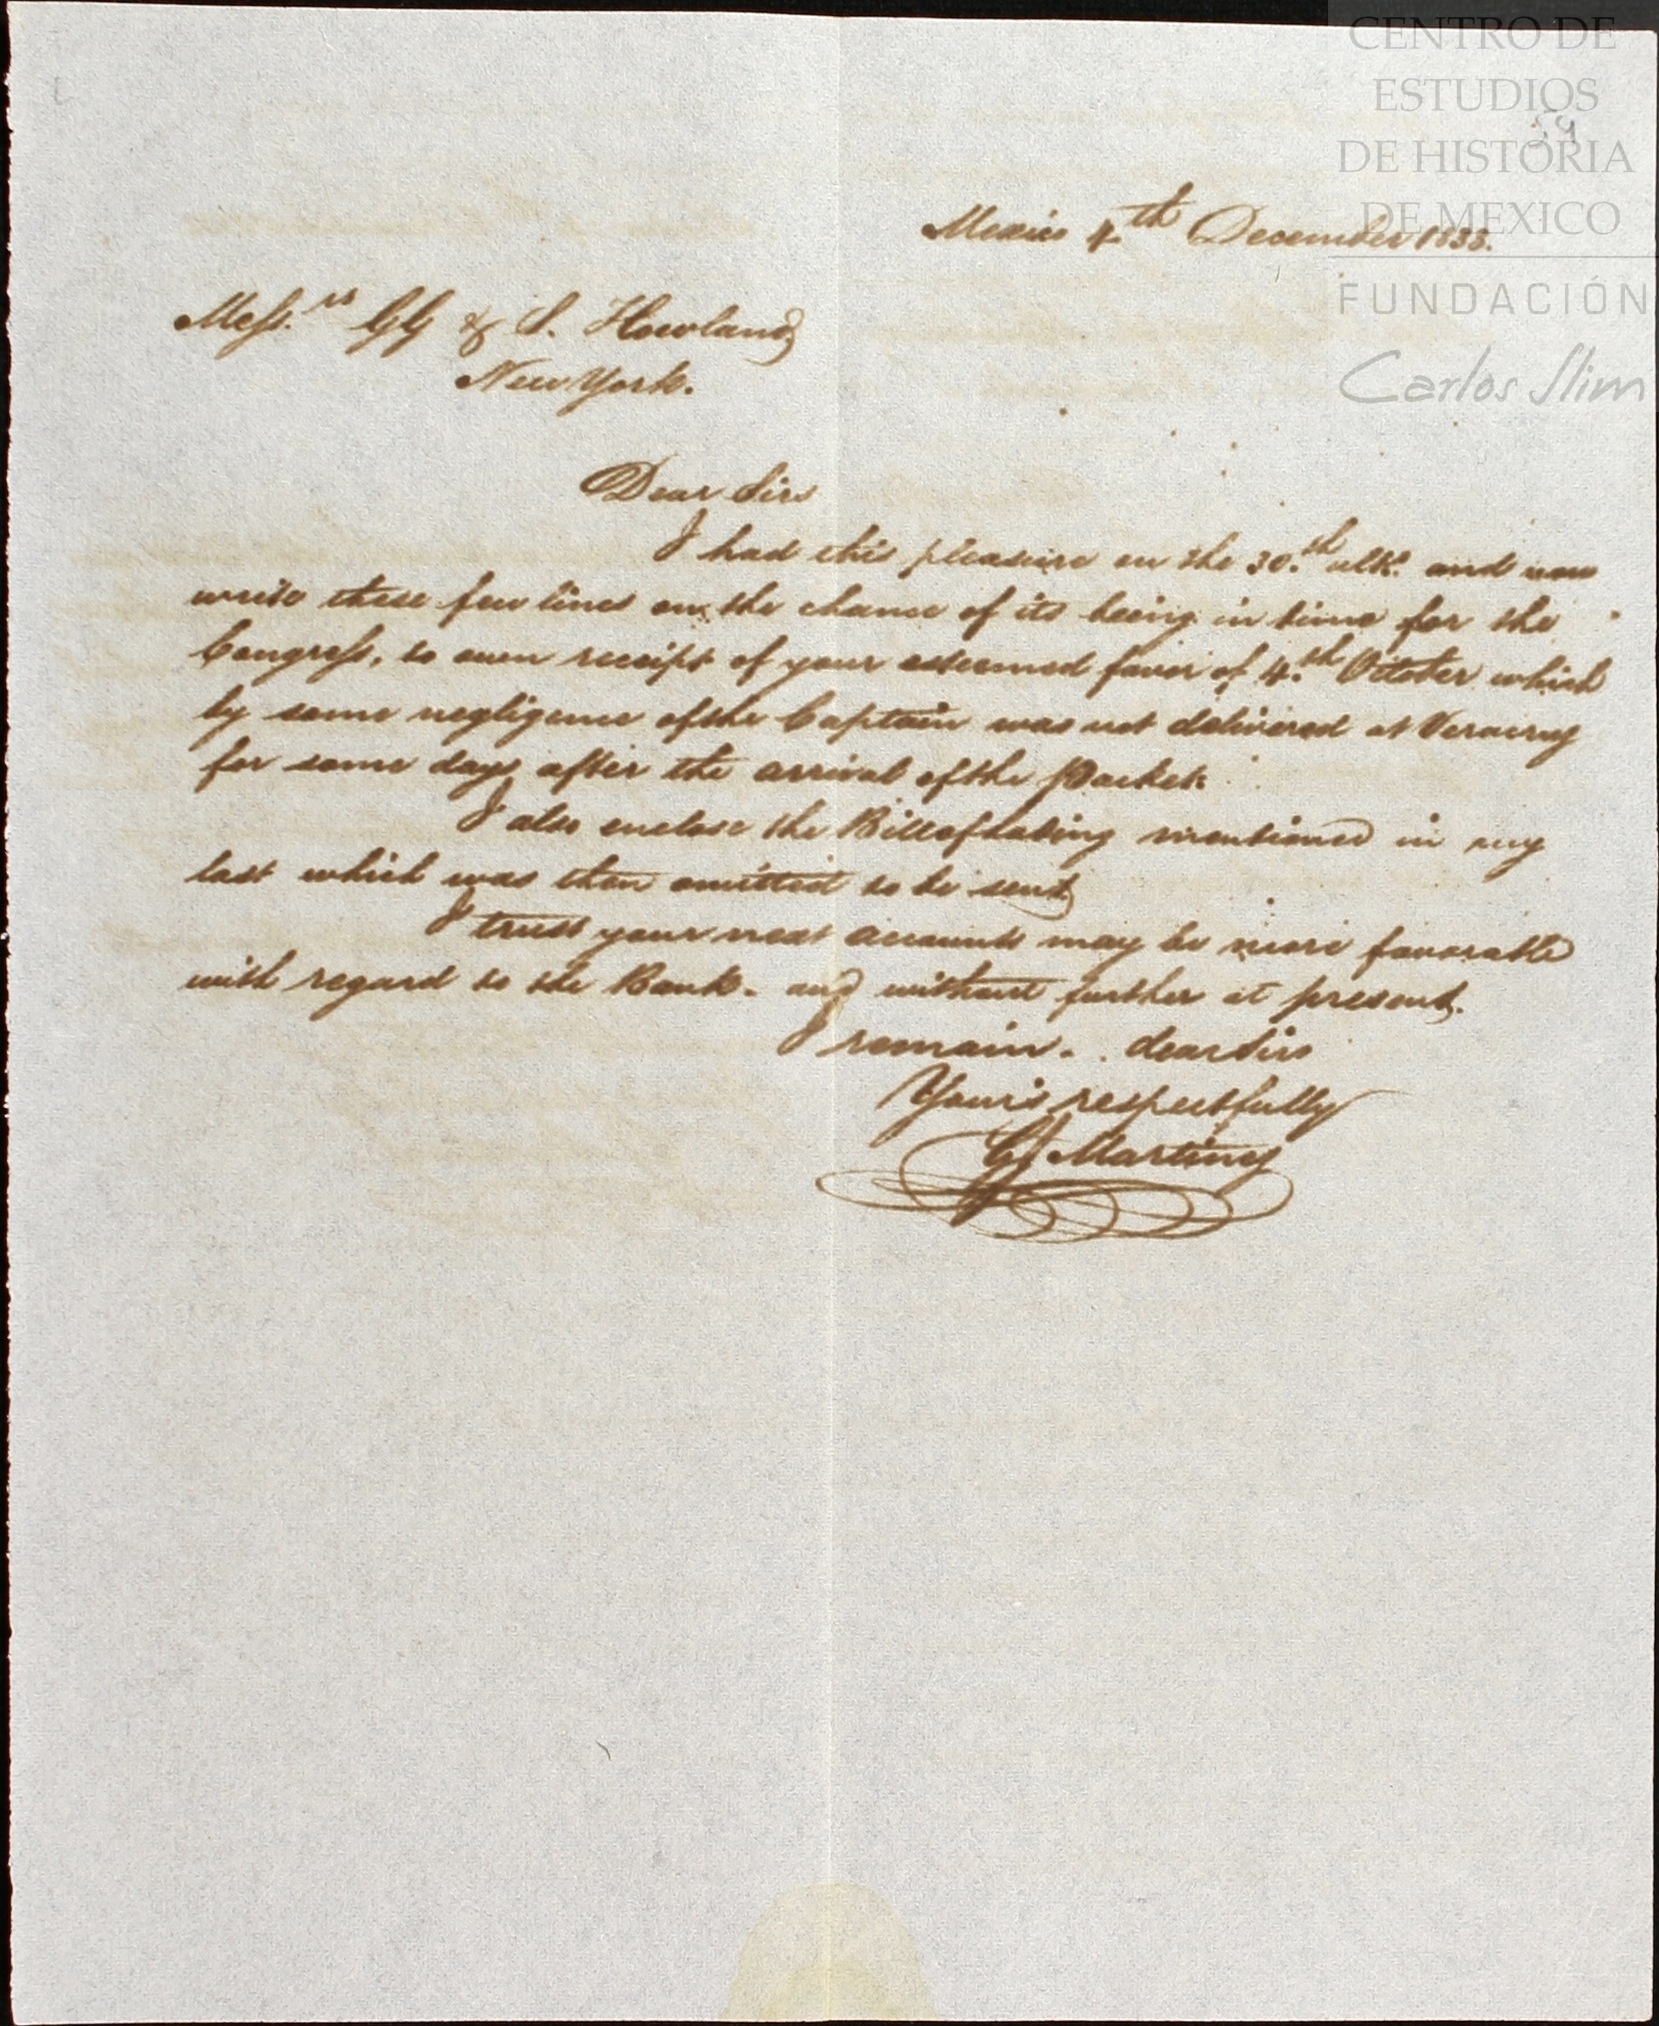 CENTRO DE
ESTUDIOS
DE HISTORIA
DE MEXICO
FUNDACIÓN
Carlos Slim
59
Mexico 4.th December 1833.
Mess.rs GG & S. Howland
New York.
Dear Sirs
I had this pleasure on the 30.th ulto. and now
write these few lines on the chance of its being in time for the
Congress, to own receipt of your esteemed favor of 4.th October which
by some negligence of the Captain was not delivered at Veracruz
for some days after the arrival of the Packet.
I also enclose the Bill of Lading mentioned in my
last which was then omitted to be sent
I trust your next accounts may be more favorable
with regard to the Bank. and without further at present.
I remain. dear Sirs
Your's respectfully
Martinez